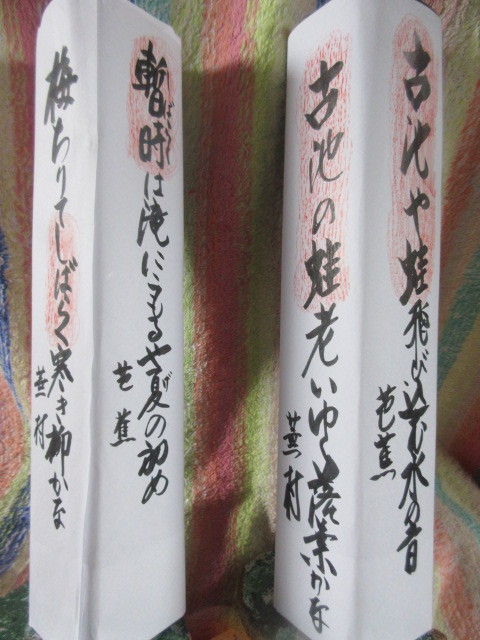 古池や蛙飛び込む水の音
芭蕉
古池の蛙老いゆく落葉かな
蕪村
暫時は滝にこもるや夏の初め
しばらく
げ
芭蕉
梅ちりてしばらく寒き柳かな
蕪村